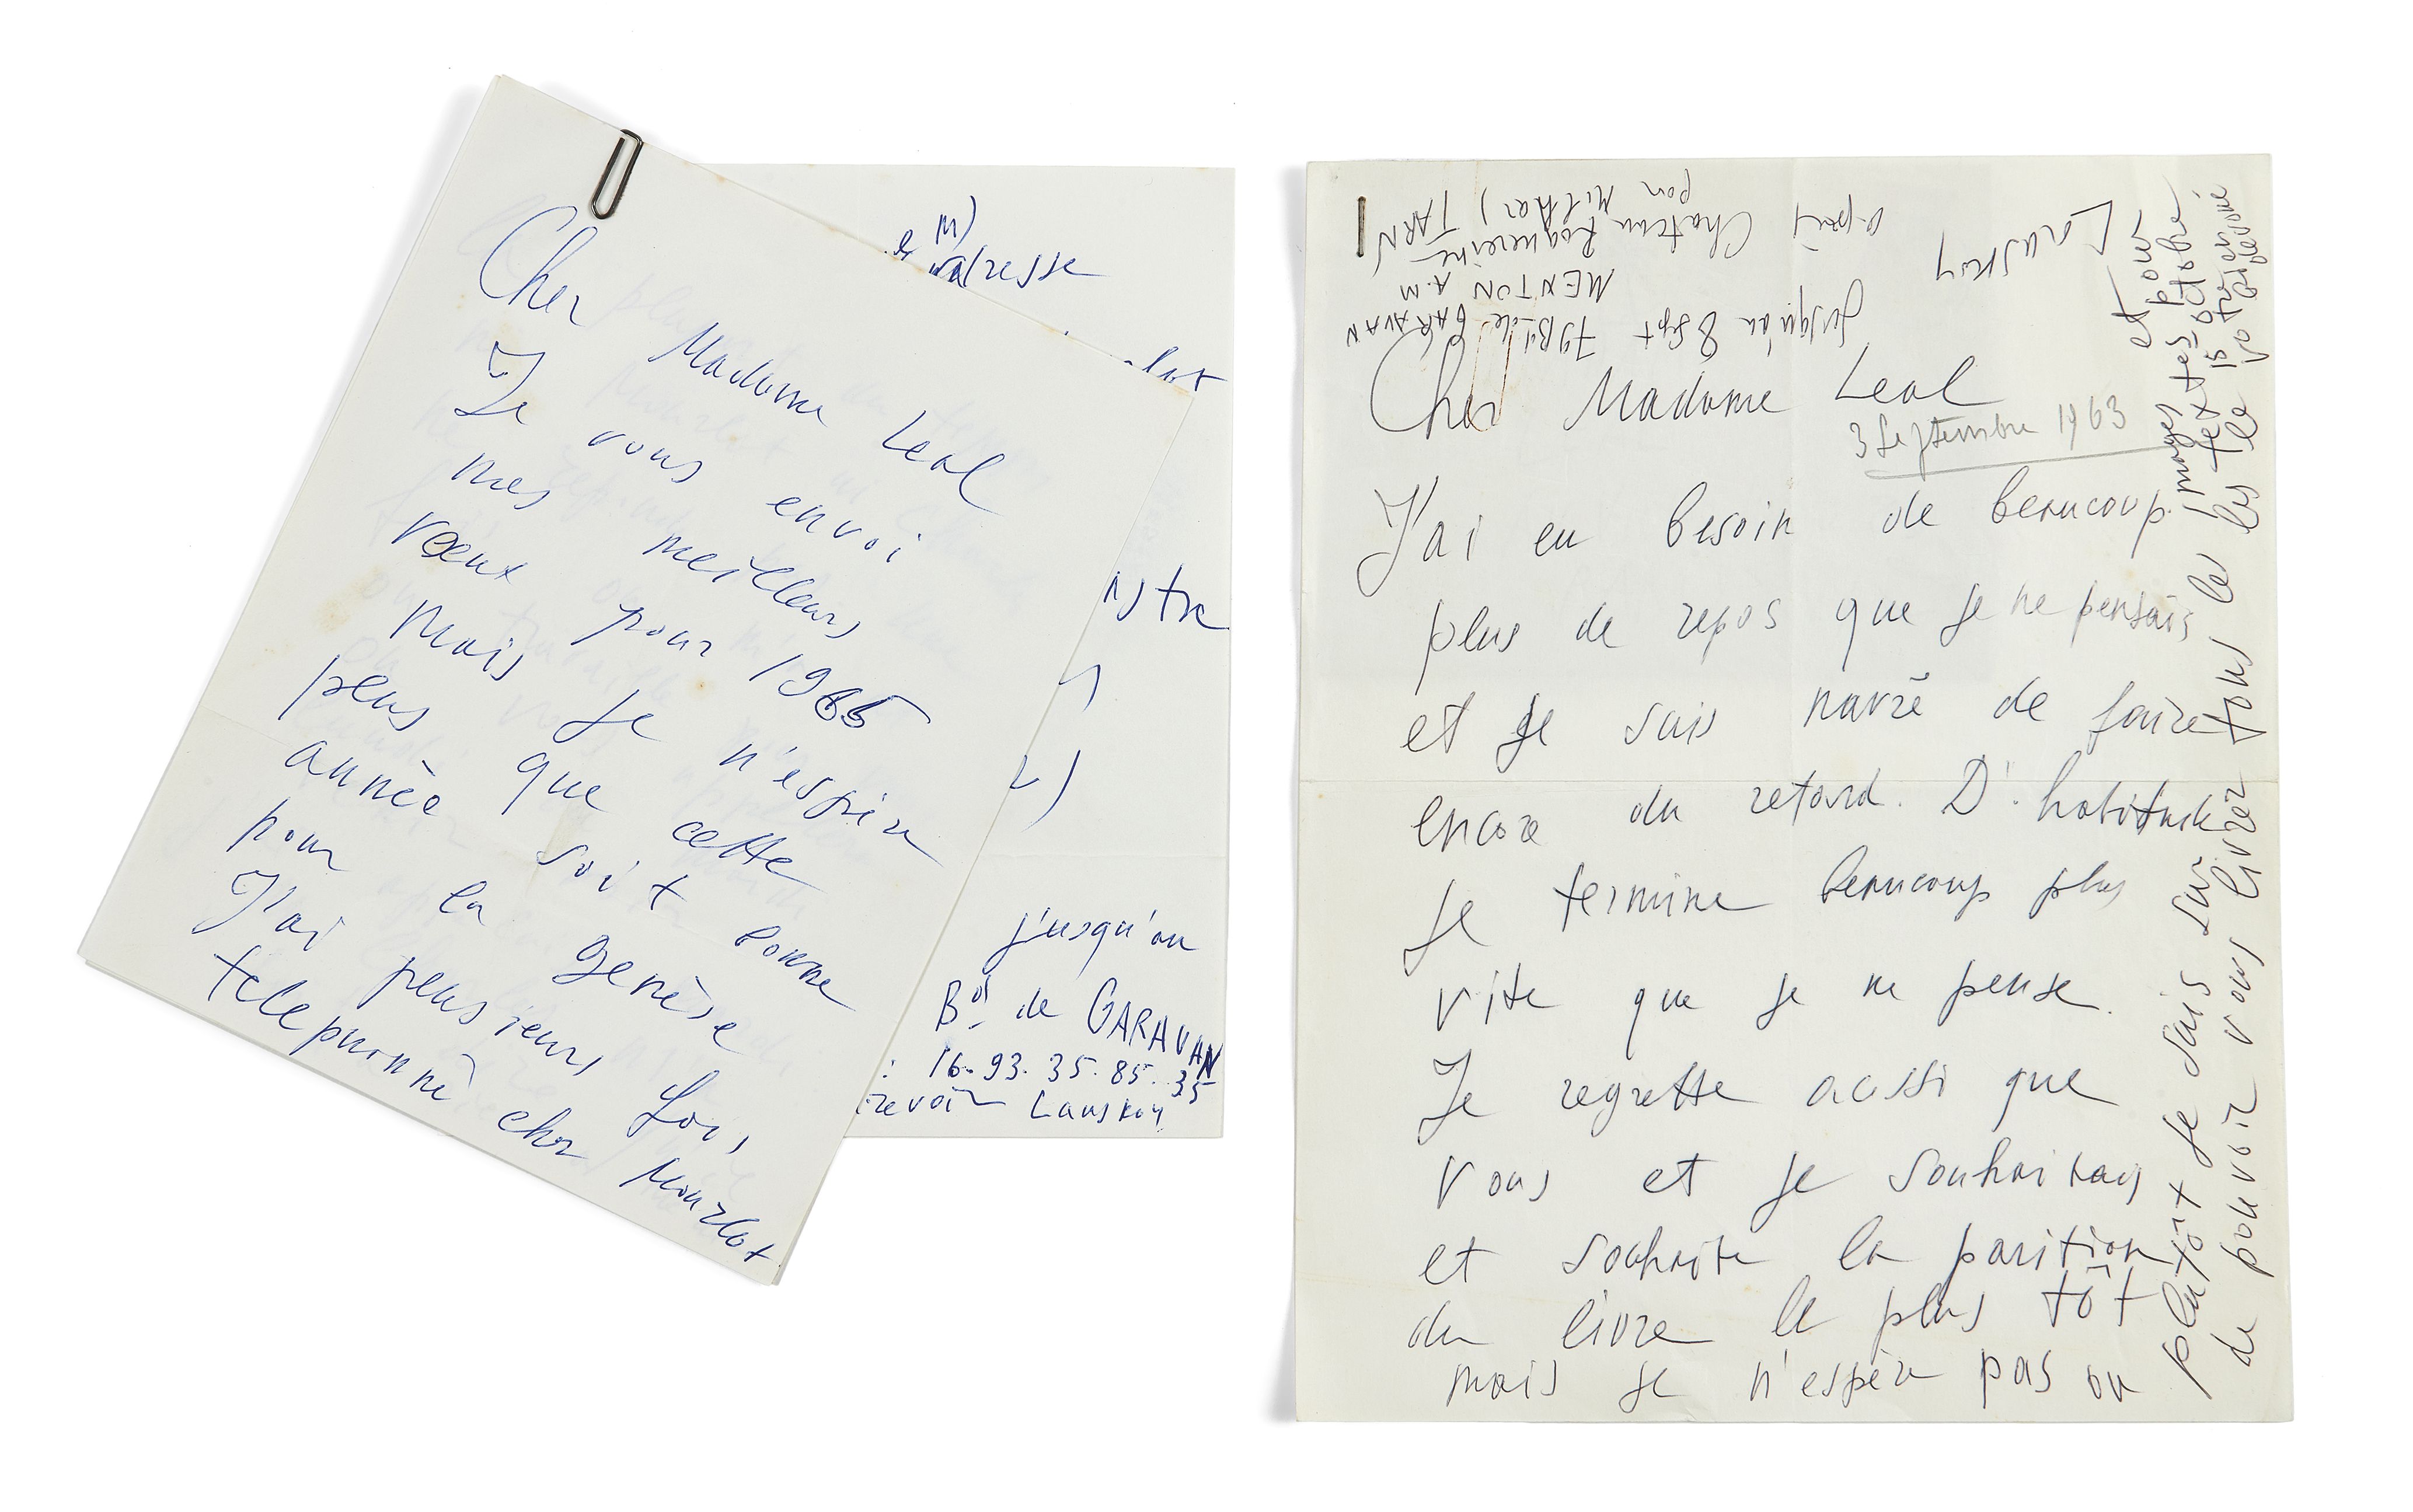 Cher Madame Leal
Je vous envoi
mes meilleurs
vœux pour 1965
Mais je n'espèr
plus que cette
année soit bonne
pour la genèse
J'ai plusieurs fois
telephonné cher Mourlot
adresse
jusqu'au
Bd de GARAVAN
: 16.93.35.85.35
revoir Lanskoy
Cher Madame Leal
3 Septembre 1963
J'ai eu besoin de beaucoup
plus de repos que je ne pensais
et je suis navré de faire
encore du retard. D'habitude
je termine beaucoup plus
vite que je ne pense.
Je regrette aussi que
vous et je souhaitais
et souhaite la parition
du livre le plus tôt
mais je n'espèr pas ou
plutôt je suis sur
de pouvoir vous livrer tous les
images et pour
les textes 15 octobre
le
votre
Lanskoy
jusqu'au 8 Sept 79 Bd de GARAVAN
MENTON A.M
après Chateau Roquereine
par Milhar) TARN